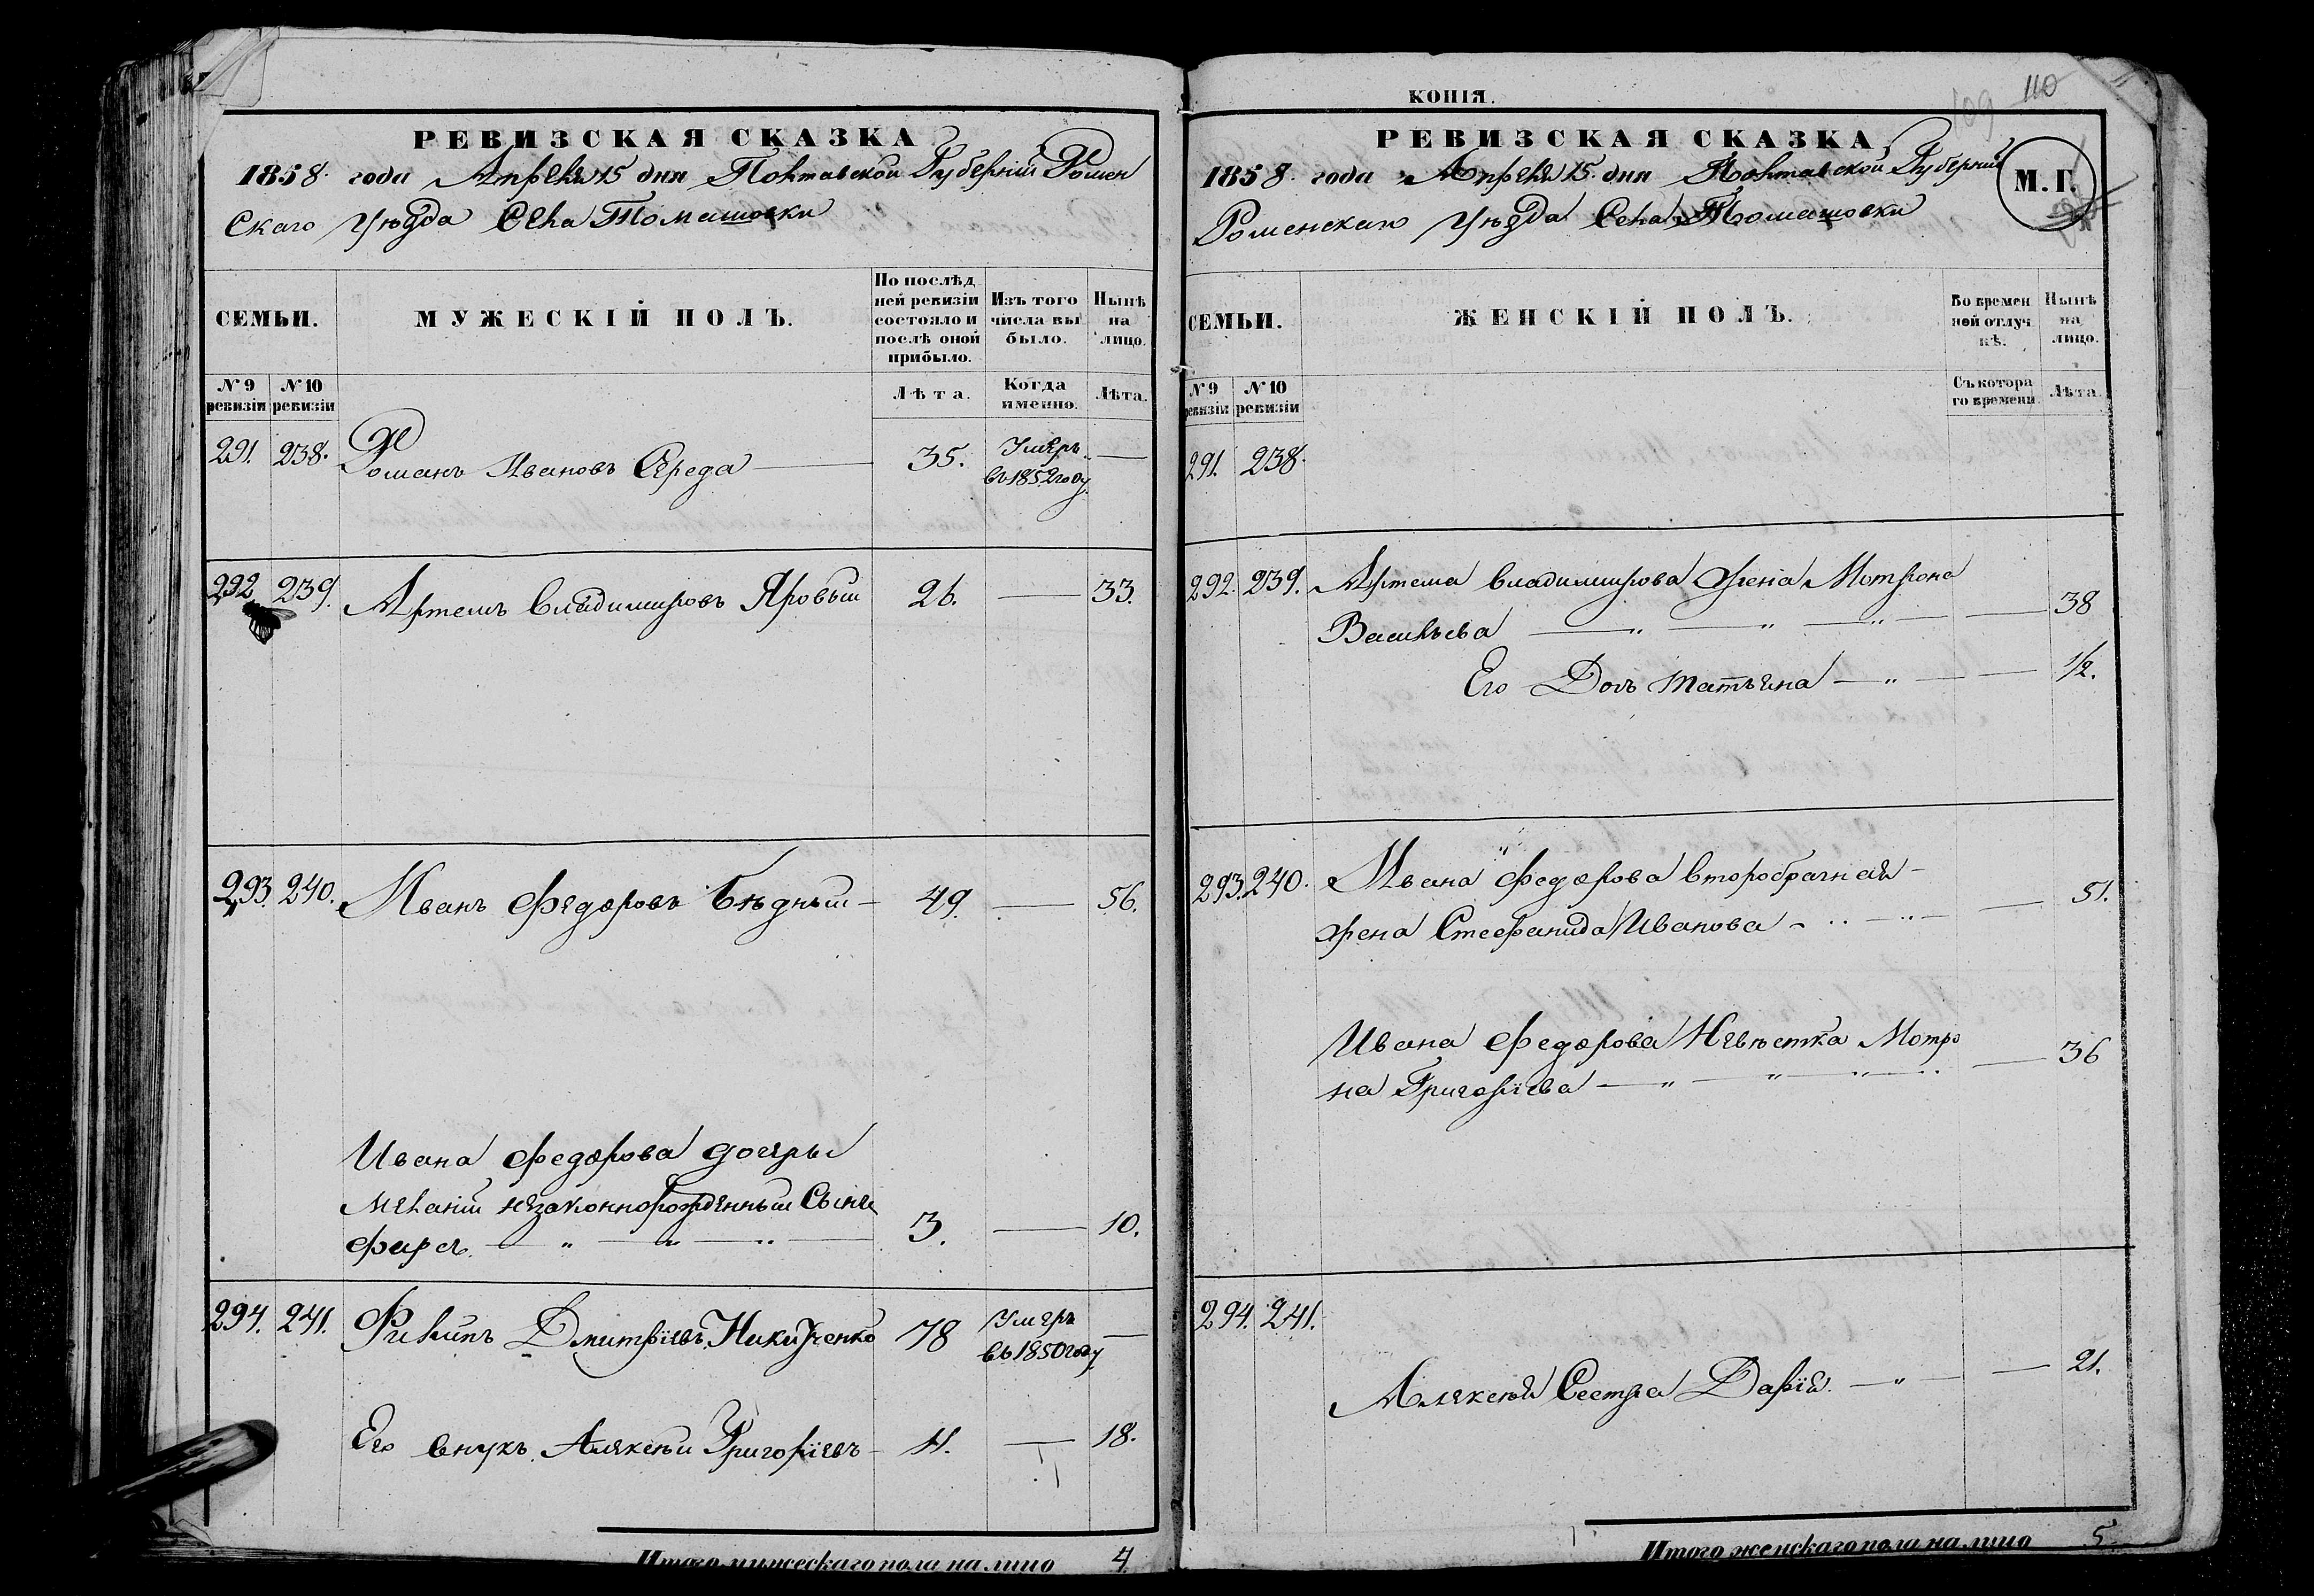 РЕВИЗСКАЯ СКАЗКА
1858. года Апреля 15 дня Полтавской Губернiи Ромен
скаго Уѣзда Села Томашовки
СЕМЬИ.
МУЖЕСКIЙ ПОЛЪ.
По послѣд
ней ревизiи
состояло и
послѣ оной
прибыло.
Изъ того
числа вы
было.
Нынѣ
на
лицо.
№ 9
ревизiи
№ 10
ревизiи
Лѣта.
Когда
именно.
Лѣта.
291. 238. Романъ Ивановъ Середа — 35. Умеръ —
въ 1852 году.
292 239. Артемъ Владимировъ Яровый 26. — 33.
293. 240. Иванъ Федоровъ Бѣдный — 49. — 56.
Ивана Федорова дочеры
Меланiи незаконнорожденный Сынъ
Фирсъ. — " — " — " — 3. — 10.
294. 241. Филипъ Дмитрiевъ Никитченко 78 Умеръ —
въ 1850 году
Его внукъ Алексѣй Григорiевъ — 11. — 18.
Итого мужескаго пола на лицо 4
КОПIЯ.
110
109
РЕВИЗСКАЯ СКАЗКА
М. Г.
1858. года Апреля 15. дня Полтавской Губернiи
Роменскаго Уѣзда Села Томашовки
СЕМЬИ.
ЖЕНСКIЙ ПОЛЪ.
Во времен
ной отлуч
кѣ.
Нынѣ
на
лицо.
№ 9
ревизiи
№ 10
ревизiи
Съ котора
го времени
Лѣта.
291. 238.
292. 239. Артема Владимирова жена Мотрона
Васильева — " — " — " — — 38
Его Дочь Татьяна — " — — 1/2.
293. 240. Ивана Федорова второбрачная —
жена Стефанида Иванова — " — " — — 51.
Ивана Федорова Невѣстка Мотро
на Григорiева — " — " — " — " — 36
294. 241.
Алексѣя Сестра Дарiя. — " — — 21.
Итого женскаго пола на лицо 5